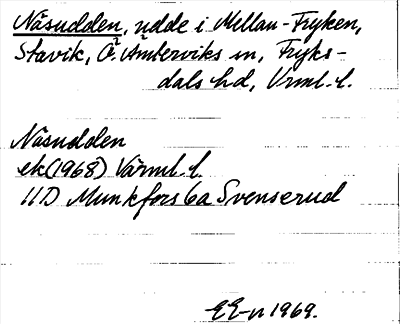 Näsudden, udde i Mellan-Fryken,
Stavik, Ö. Ämterviks sn, Fryks-
dals hd, Vrml. l.
Näsudden
ek(1968) Värml. l.
11D Munkfors 6a Svenserud
EE-n 1969.